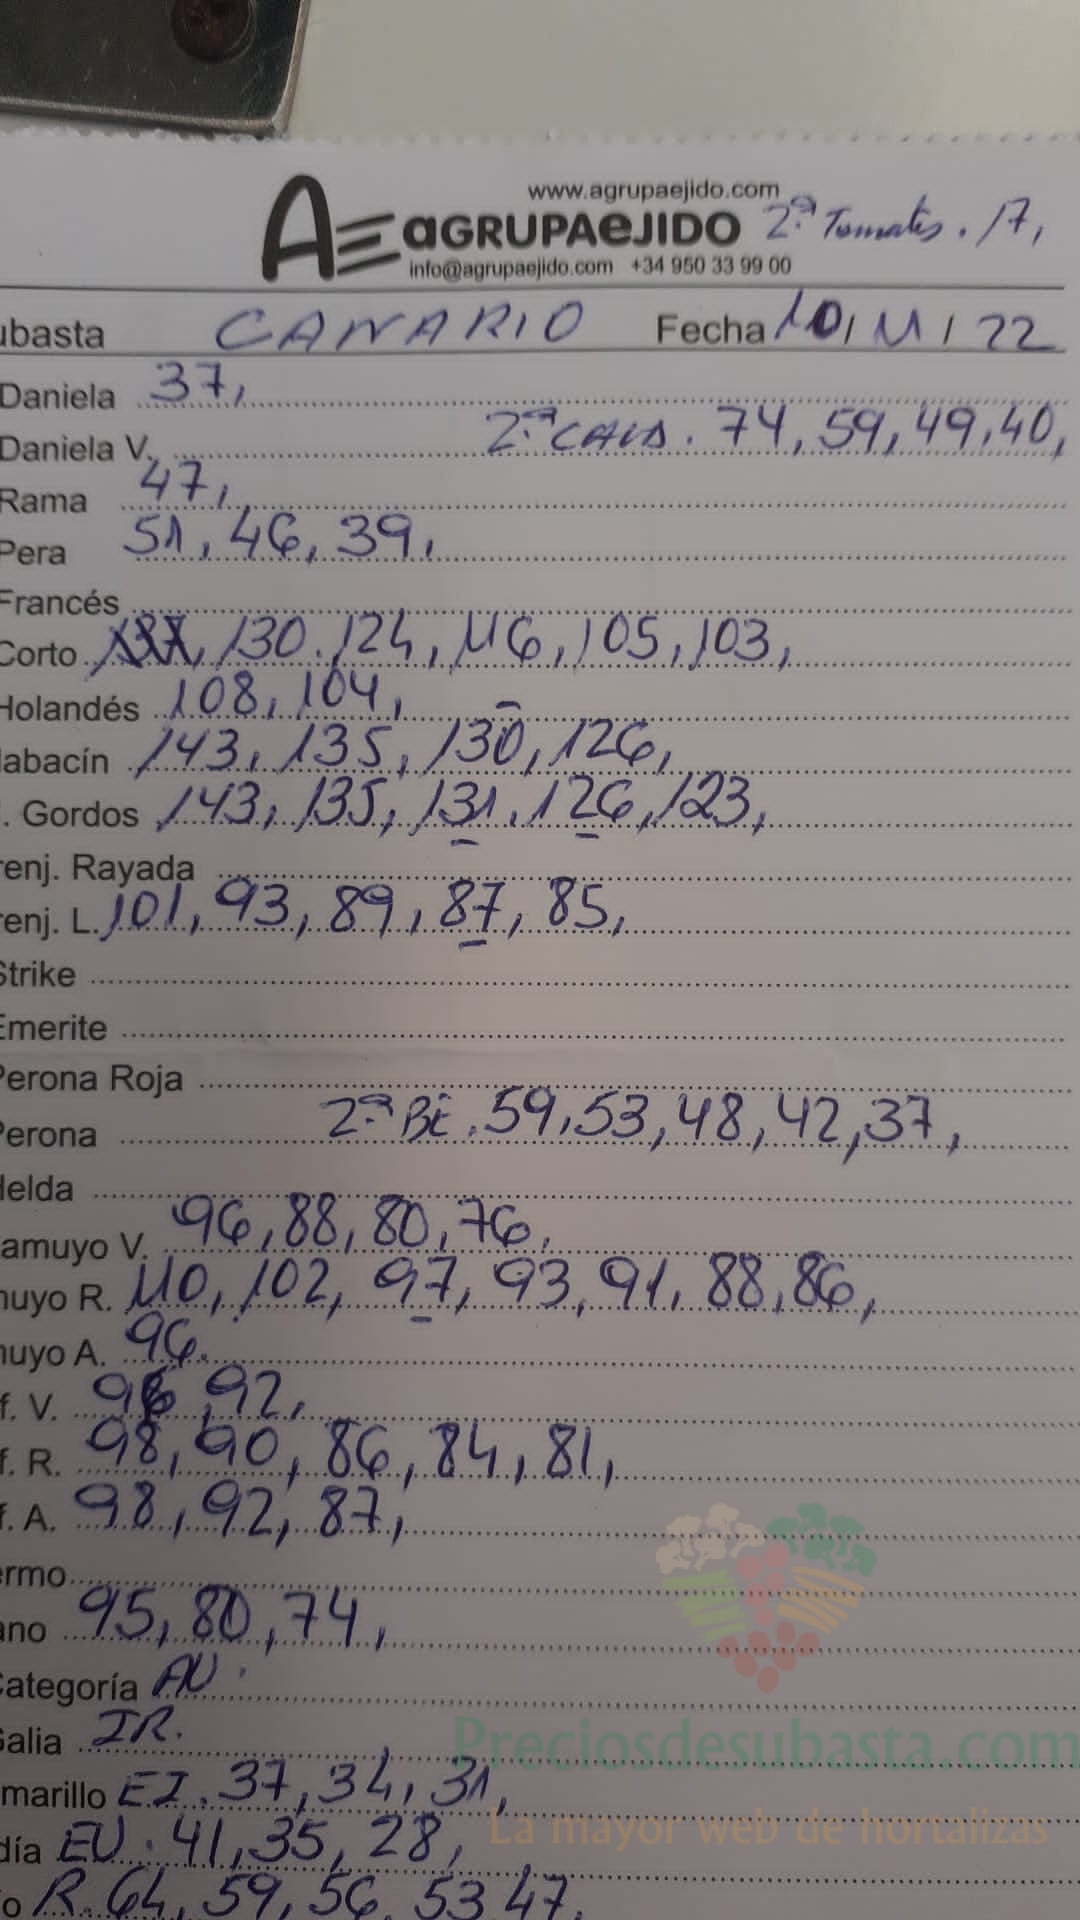 www.agrupaejido.com
AE aGRUPAeJIDO 2ª Tomates. 17,
info@agrupaejido.com +34 950 33 99 00
ubasta CANARIO Fecha 10/11/22
Daniela 37,
Daniela V. 2ª CALA. 74, 59, 49, 40,
Rama 47,
Pera 51, 46, 39,
Francés
Corto 130. 124, 116, 105, 103,
Holandés 108, 104,
labacín 143, 135, 130, 126,
. Gordos 143, 135, 131, 126, 123,
renj. Rayada
renj. L. 101, 93, 89, 87, 85,
Strike
Emerite
Perona Roja
Perona 2ª BE. 59, 53, 48, 42, 37,
Helda
amuyo V. 96, 88, 80, 76,
nuyo R. 110, 102, 97, 93, 91, 88, 86,
nuyo A. 96.
f. V. 92,
f. R. 98, 90, 86, 84, 81,
f. A. 98, 92, 87,
ermo
ano 95, 80, 74,
Categoría AU.
Galia IR.
marillo EI. 37, 34, 31,
día EU. 41, 35, 28,
o R. 64, 59, 56, 53 47,
Preciosdesubasta.com
La mayor web de hortalizas